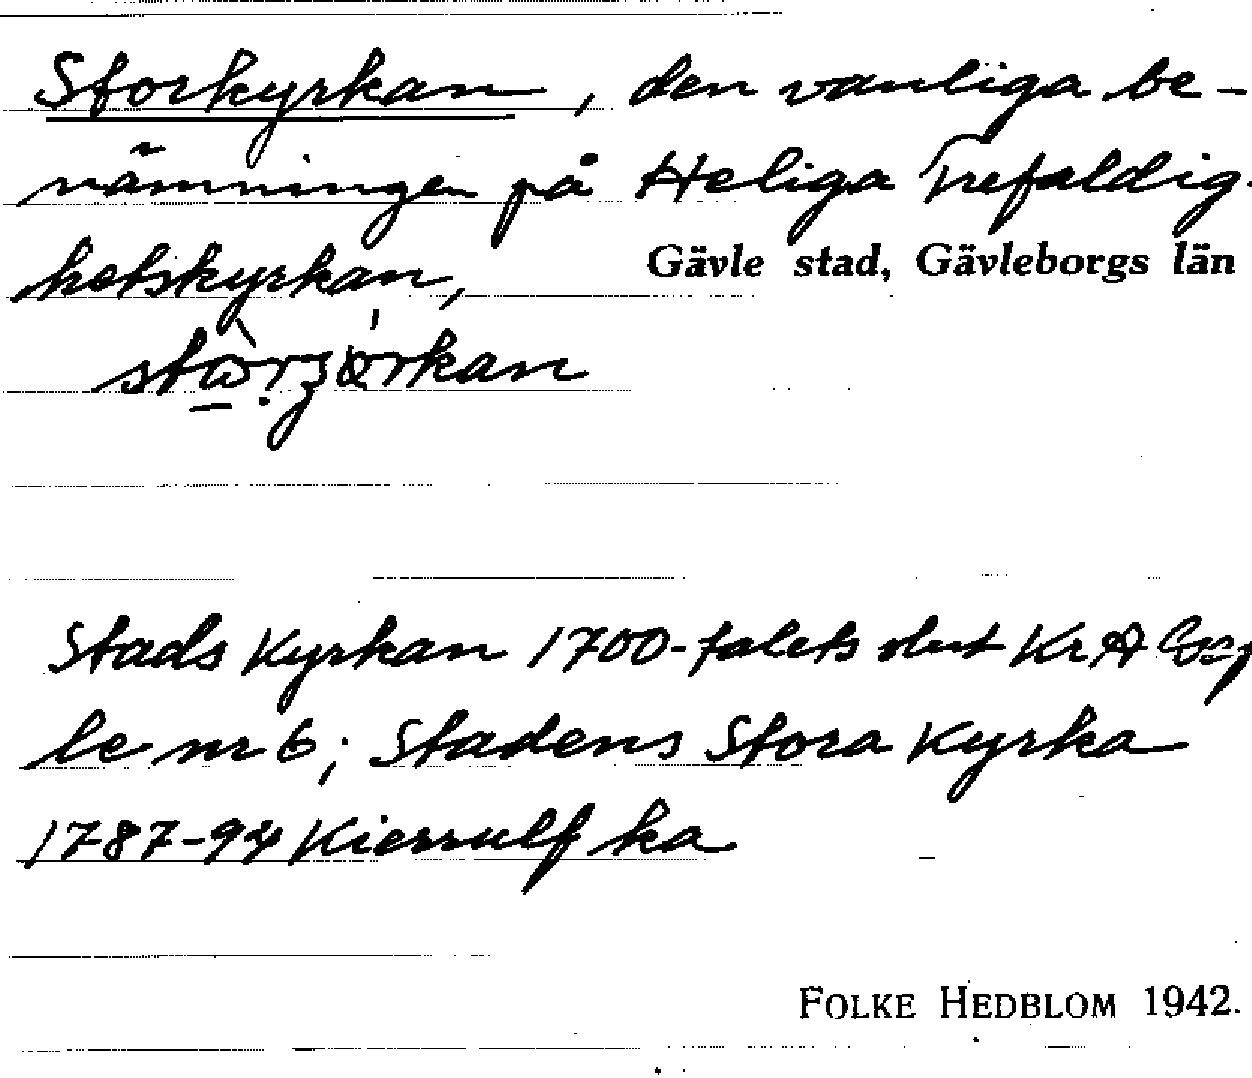 Storkyrkan, den vanliga be-
nämningen på Heliga Trefaldig-
hetskyrkan,
Gävle stad, Gävleborgs län
Stads Kyrkan 1700-talets slut Kr A Gef
le nr 6; Stadens Stora Kyrka
1787-94 Kierrulf ka
FOLKE HEDBLOM 1942.